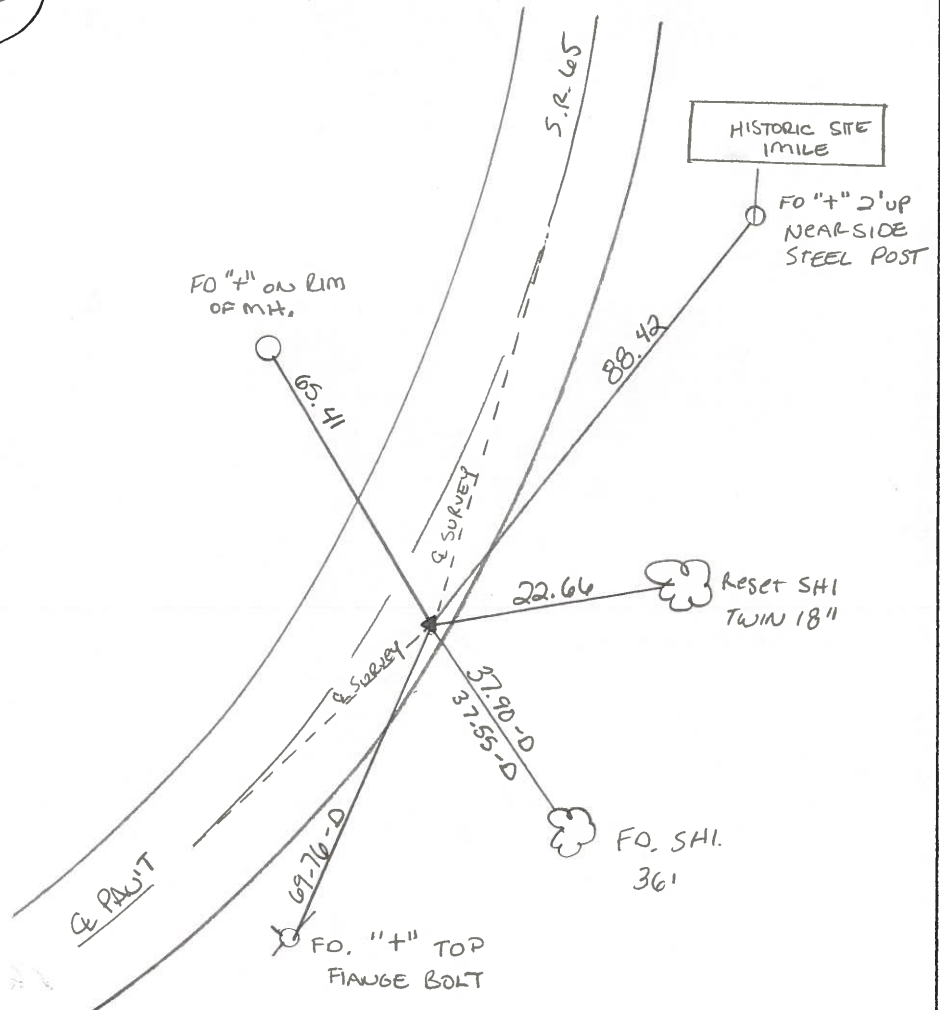 S.R. 65
HISTORIC SITE
1MILE
FO "+" 2' UP
NEAR SIDE
STEEL POST
FO "+" ON RIM
OF MH.
88.42
65.41
℄ SURVEY
22.66
Reset SHI
TWIN 18"
℄ SURVEY
37.90-D
37.55-D
FD. SHI.
36'
69.76-D
℄ PAV'T
FD. "+" TOP
FlANGE BOLT